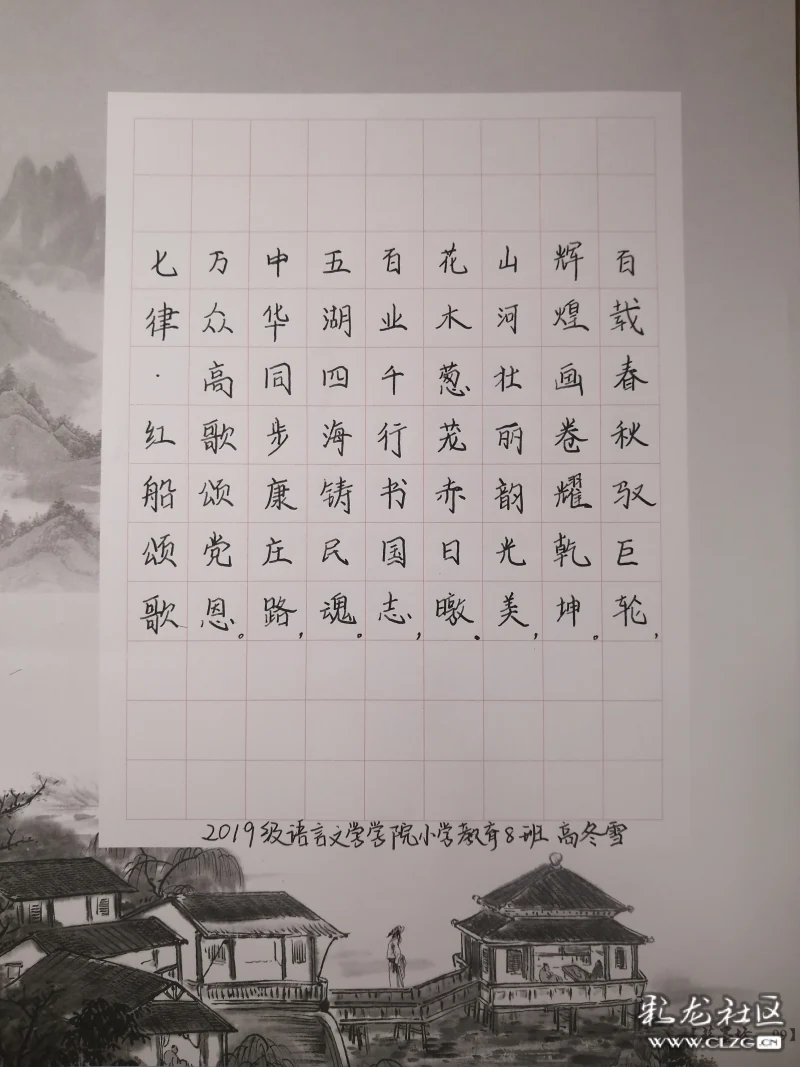 百载春秋驭巨轮,
辉煌画卷耀乾坤。
山河壮丽韵光美,
花木葱茏赤日暾。
百业千行书国志,
五湖四海铸民魂。
中华同步康庄路,
万众高歌颂党恩。
七律·红船颂歌
2019级语言文学学院小学教育8班 高冬雪
彩龙社区
WWW.CLZG.CN